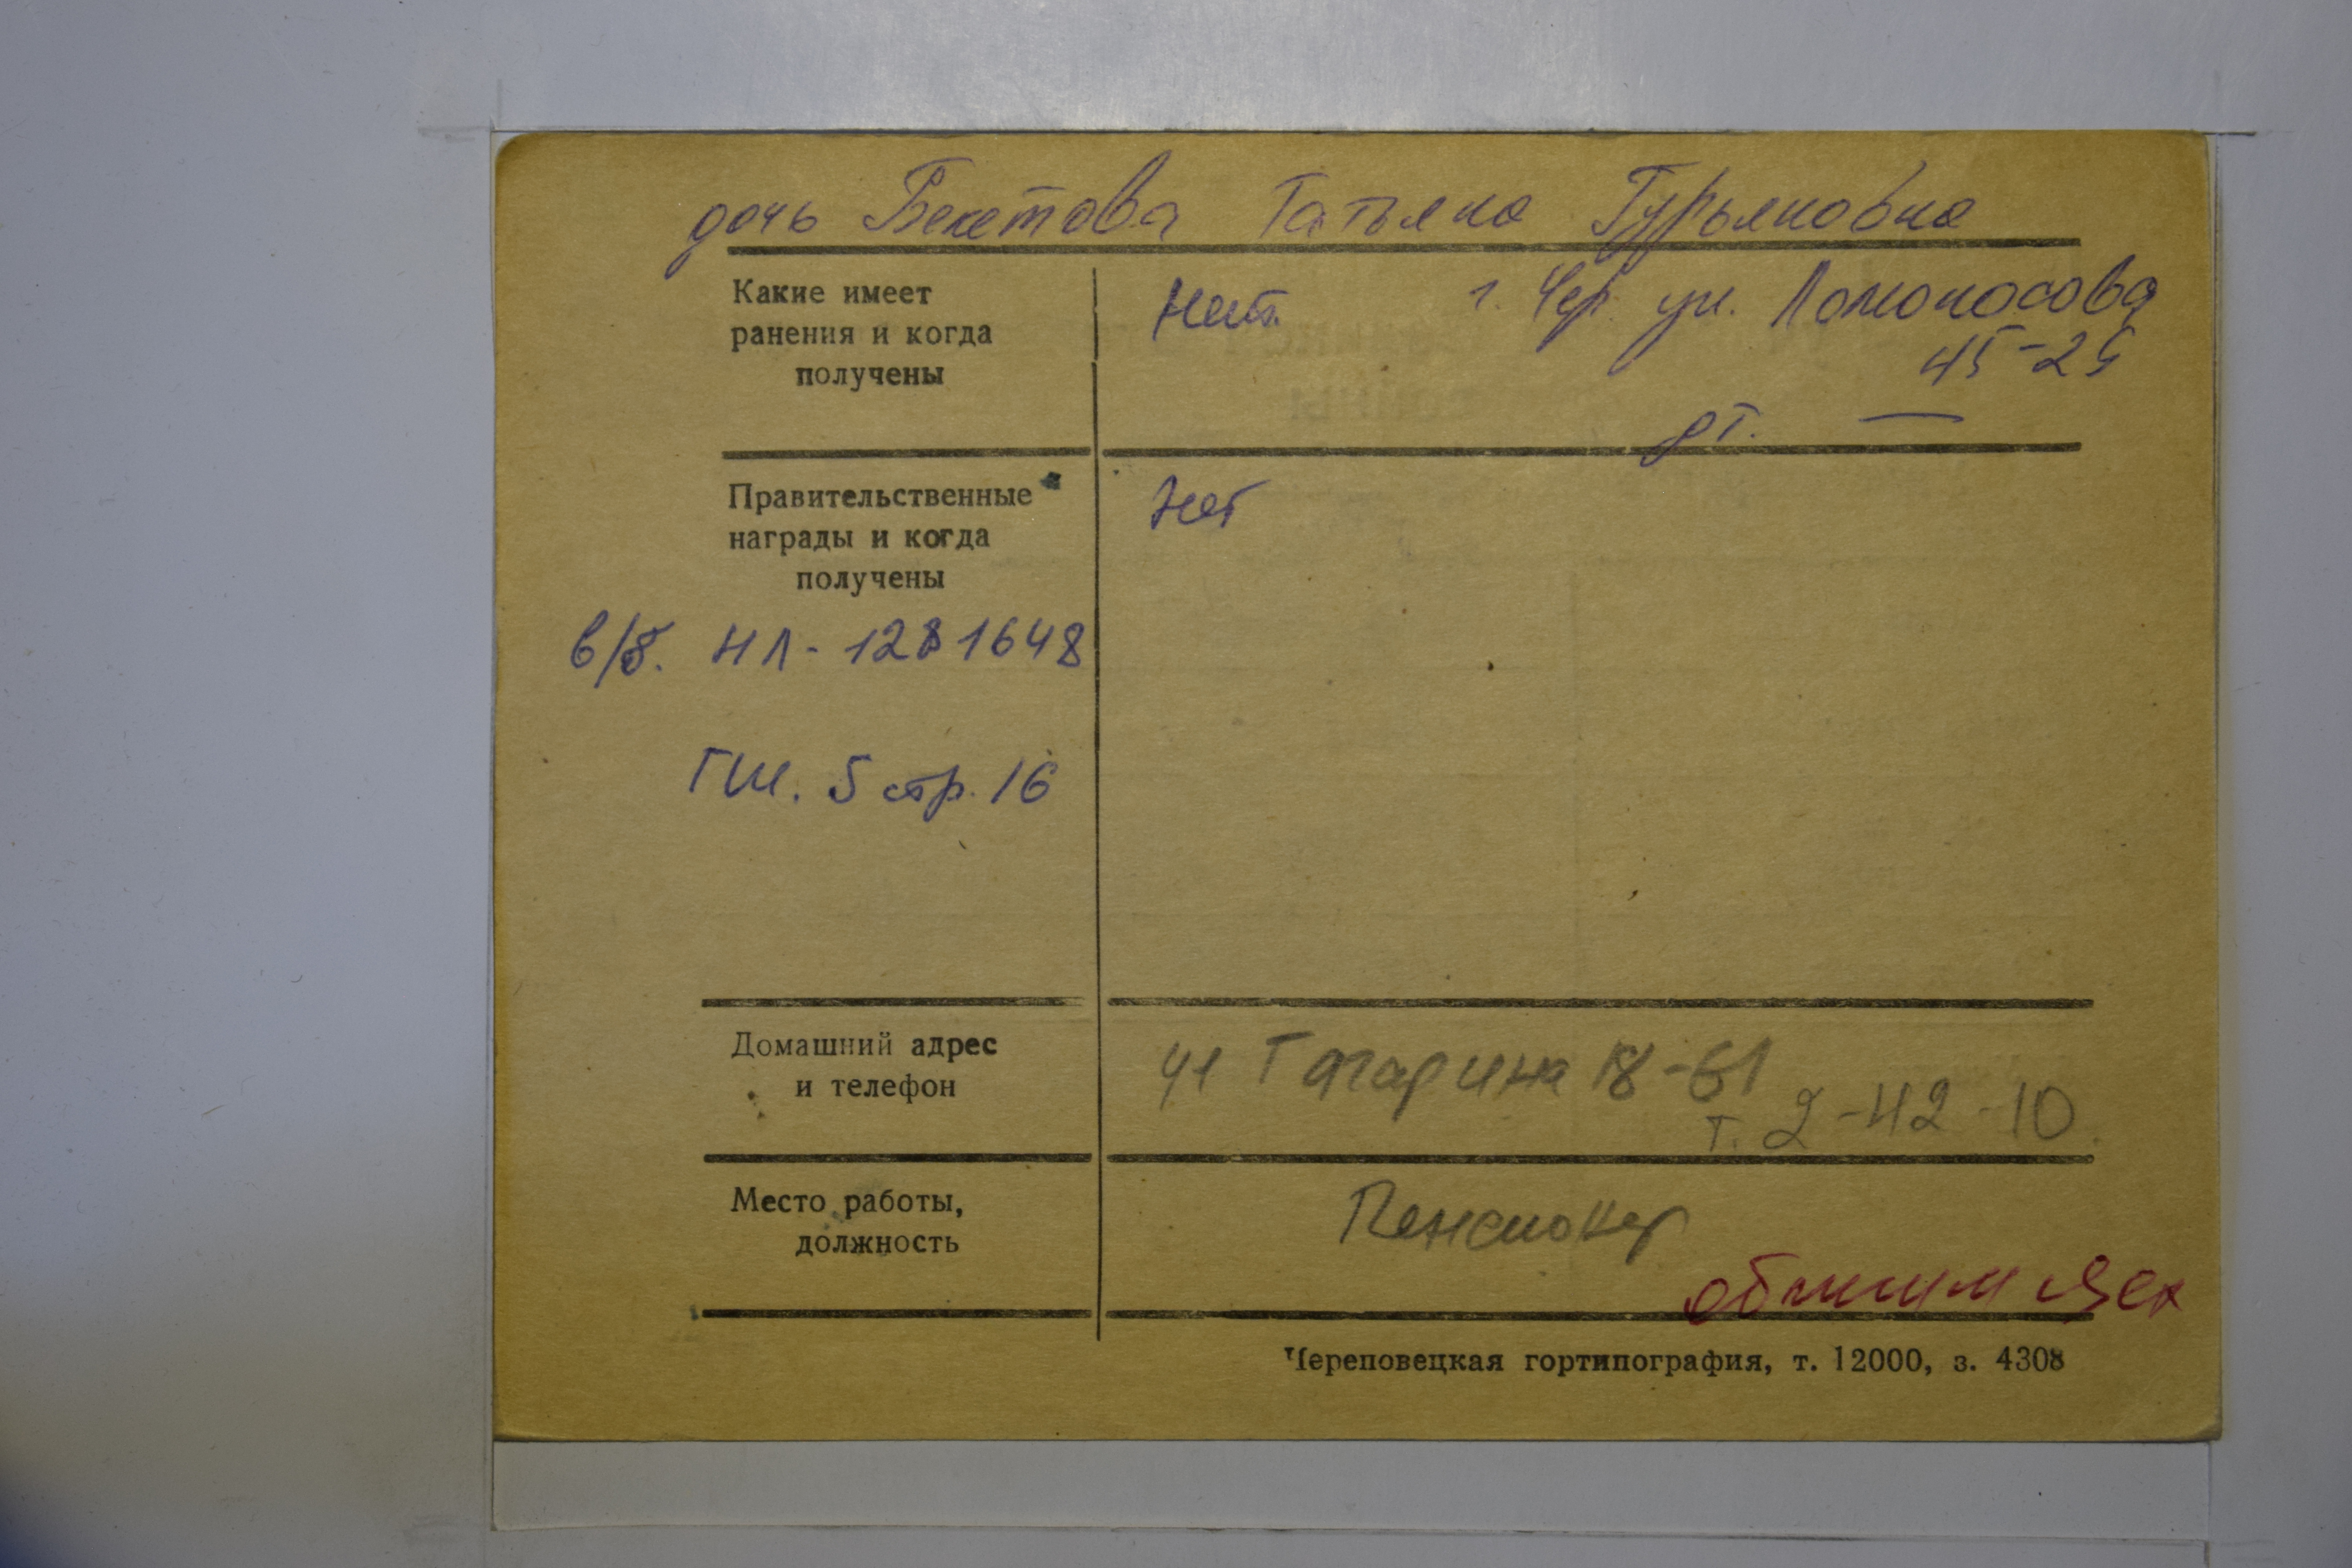 дочь Бекетова Татьяна Гурьяновна
Какие имеет
ранения и когда
получены
Нет. г. Чер. ул. Ломоносова
45-25
дт. —
Правительственные
награды и когда
получены
Нет
в/б. НЛ-1281648
ГШ. 5 стр. 16
Домашний адрес
и телефон
ул Гагарина 18-61
т. 2-42-10.
Место работы,
должность
Пенсионер
обжим цех
Череповецкая гортипография, т. 12000, з. 4308